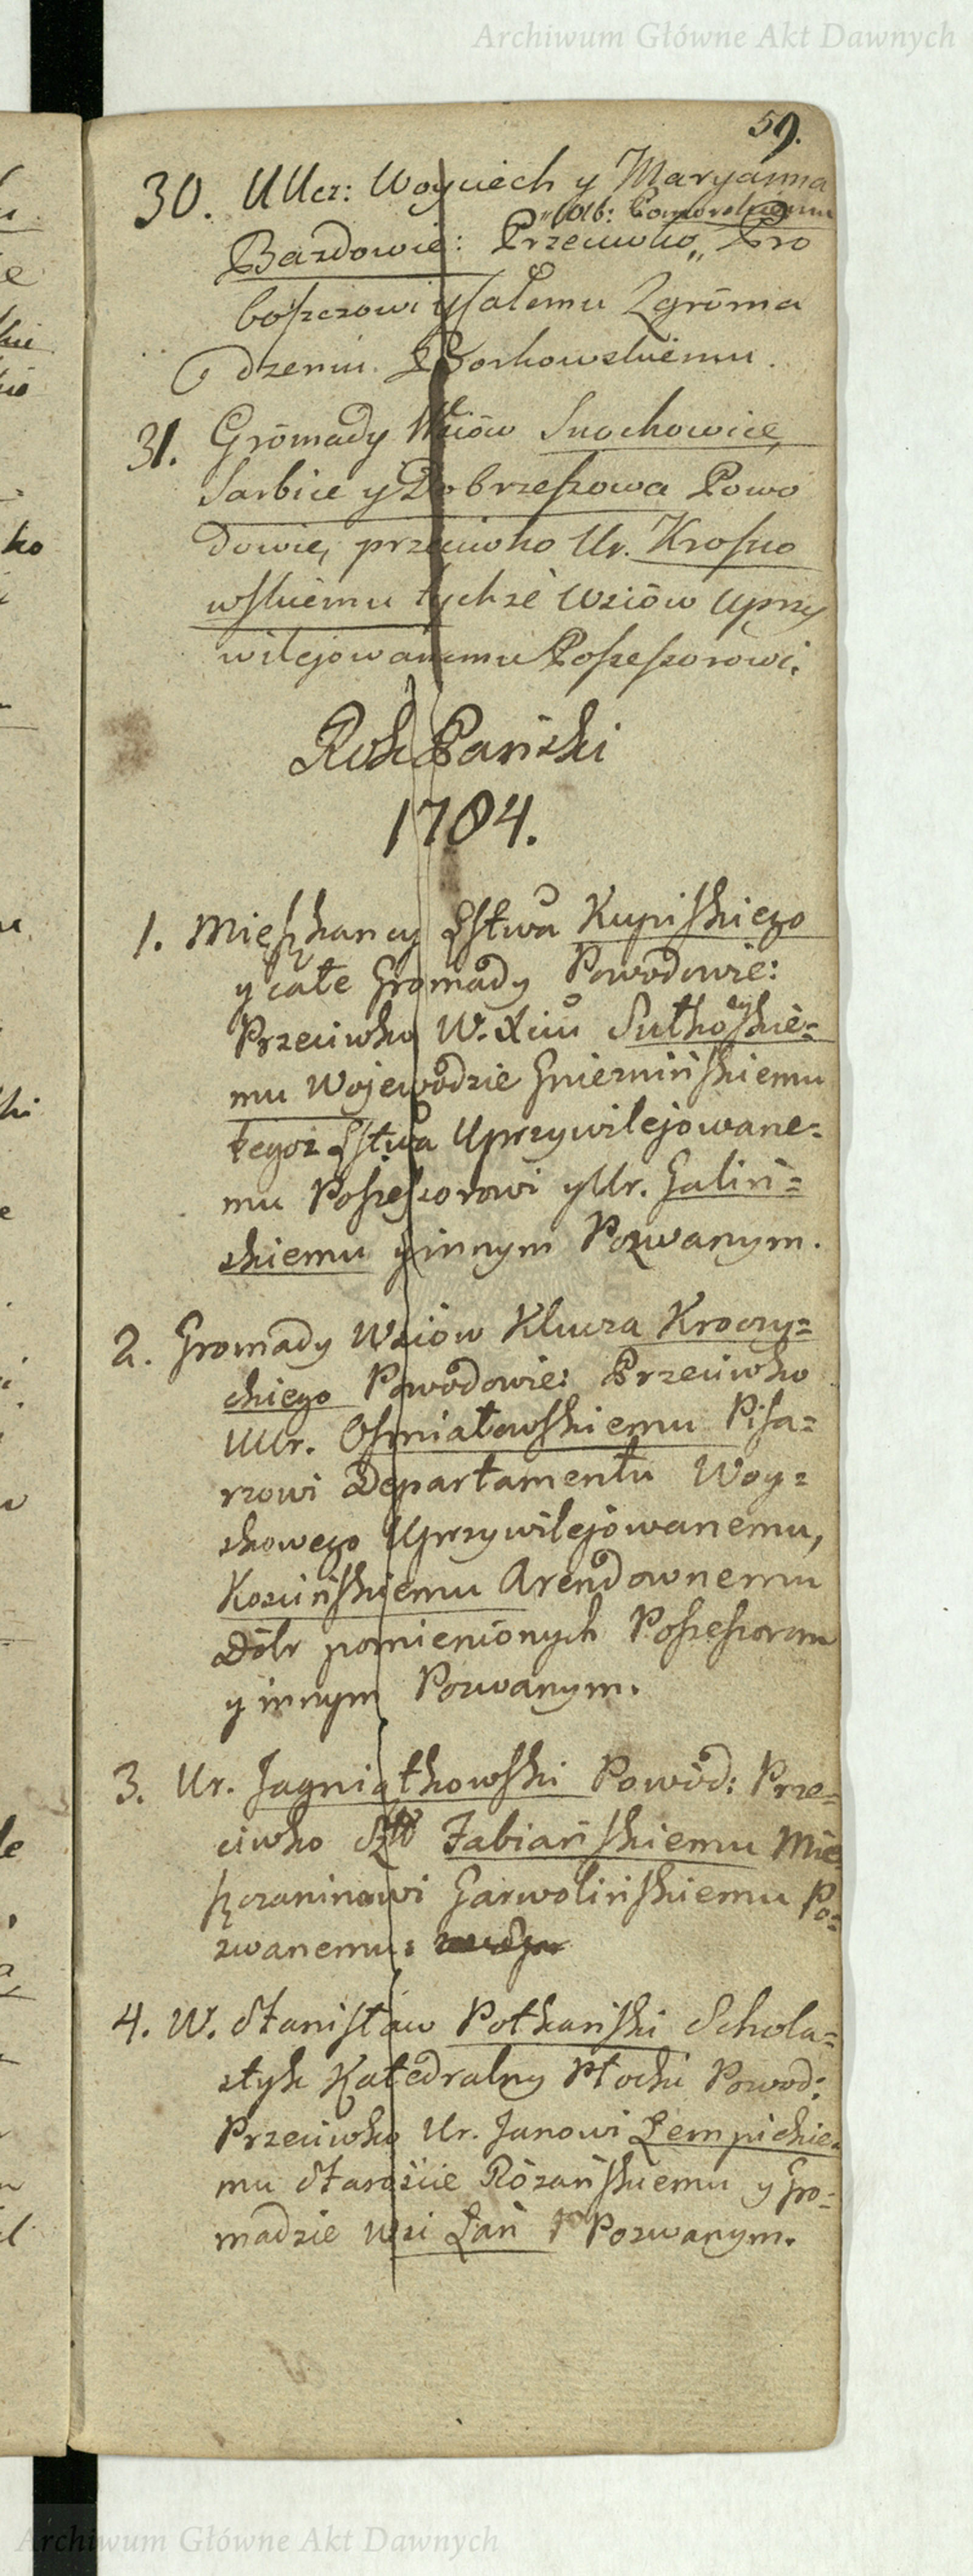 Archiwum Główne Akt Dawnych
59.
30. UUcz: Woyciech y Maryanna
Bazdowie: Przeciwko „ Pro
boszczowi y całemu Zgroma
dzeniu Borkowskiemu.
31. Gromady Wsiów Snochowice,
Sarbice y Dobrzeszowa Powo
dowie, przeciwko Ur. Krosno
wskiemu tychże Wsiów Uprzy
wilejowanemu Possessorowi.
Rok Pański
1784.
1. Mieszkancy Sstwa Kupiskiego
y całe Gromady Powodowie:
Przeciwko W. Xciu Sułkowskie=
mu Wojewodzie Gnieznińskiemu
tegoż Sstwa Uprzywilejowane=
mu Possessorowi y Ur. Galiń=
skiemu y innym Pozwanym.
2. Gromady Wsiów Klucza Kroczy=
ckiego Powodowie: Przeciwko
UUr. Osmiałowskiemu Pisa=
rzowi Departamentu Woy=
skowego Uprzywilejowanemu,
Kosińskiemu Arendownemu
Dóbr pomienionych Possessorom
y innym Pozwanym.
3. Ur. Jagniątkowski Powód: Prze=
ciwko Fabiańskiemu Mie
szczaninowi Garwolińskiemu Po=
zwanemu:
4. W. Stanisław Potkański Schola=
styk Katedralny Płocki Powod:
Przeciwko Ur. Janowi Lempickie=
mu Staroście Różańskiemu y Gro=
madzie Wsi Łań Pozwanym.
Archiwum Główne Akt Dawnych